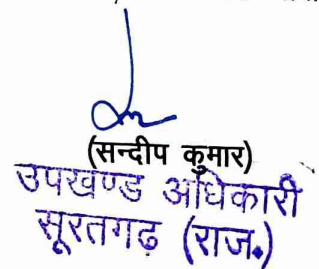 (सन्दीप कुमार)
उपखण्ड अधिकारी
सूरतगढ (राज.)